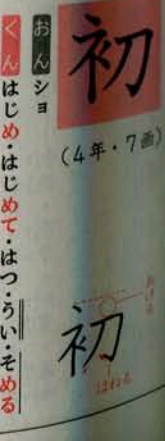 初
(4年・7画)
おん ショ
くん はじめ・はじめて・はつ・うい・そめる
初
あける
はねる